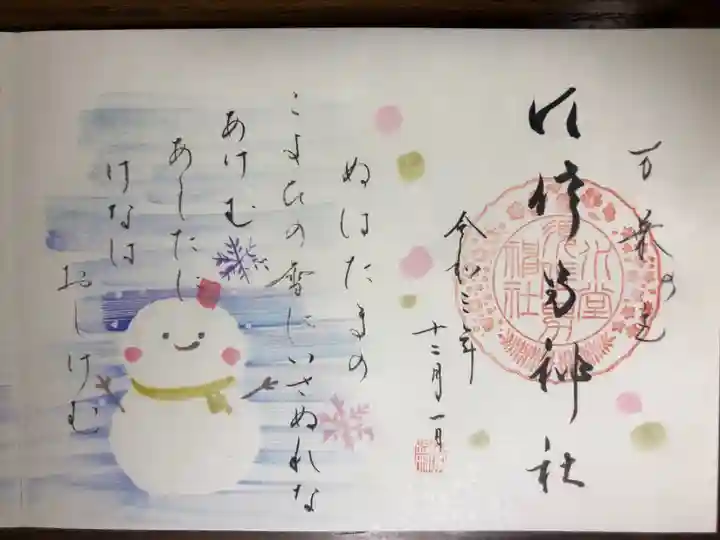 万葉の道
神社
令和三年
十二月一日
ぬはたまの
こよひの雪にいさぬれな
あけむ
あしたに
けなは
おしけむ